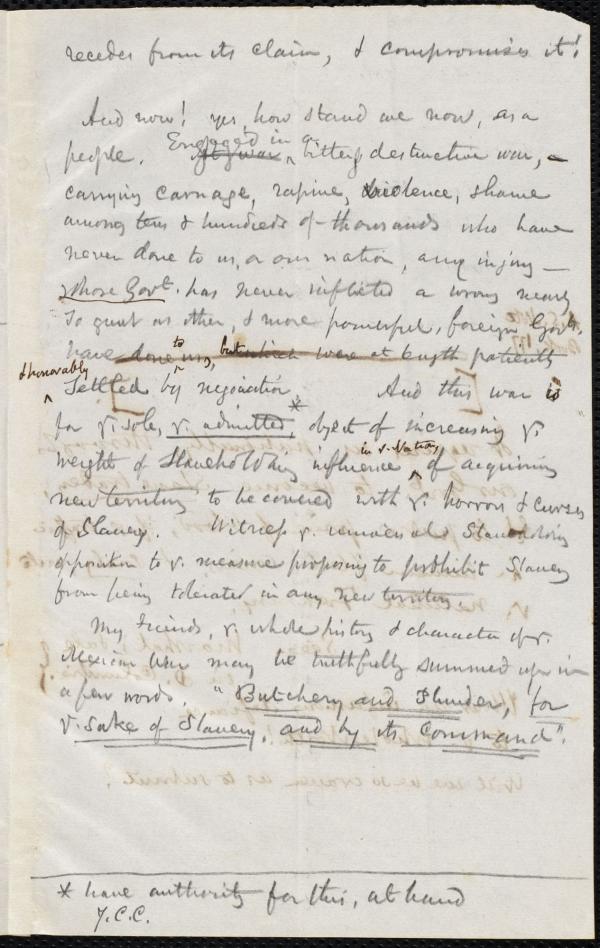 recedes from its claim, & compromises it!
And now! yes, how stand we now, as a
people. At war Engaged in a bitter, destructive war, –
carrying carnage, rapine, violence, shame
among tens & hundreds of thousands who have
never done to us, or our nation, any injury –
whose Govt. has never inflicted a wrong nearly
so great as other, & more powerful, foreign Govts.
have done to us, but which were at length patiently
& honorably settled by negociation. And this war is
for ye. sole, ye. admitted,* object of increasing ye.
weight of Slaveholding influence in ye. Nation, & of acquiring
new territory to be covered with ye. horrors & curses
of Slavery. Witness ye. Slaveholding
opposition to ye. measure proposing to prohibit Slavery
from being tolerated in any new territory.
My Friends, ye. whole history & character of ye.
Mexican War may be truthfully summed up in
a few words, "Butchery and Plunder, for
ye. sake of Slavery, and by its Command".
* have authority for this, at hand
Y.C.C.